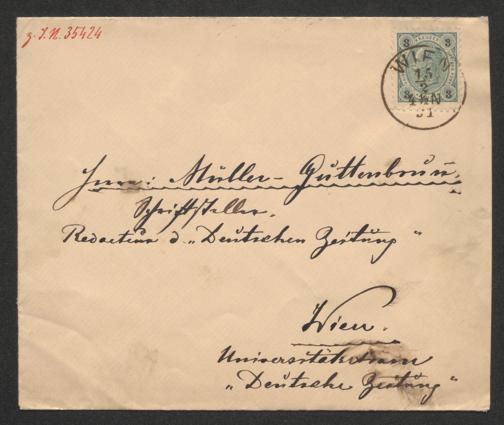 z. I.N. 35424
3 3
WIEN
15
2
91
3 3
Herrn: Müller-Guttenbrunn.
Schriftsteller.
Redacteur d. „Deutschen Zeitung"
Wien.
Universitätsstrasse
„Deutsche Zeitung"